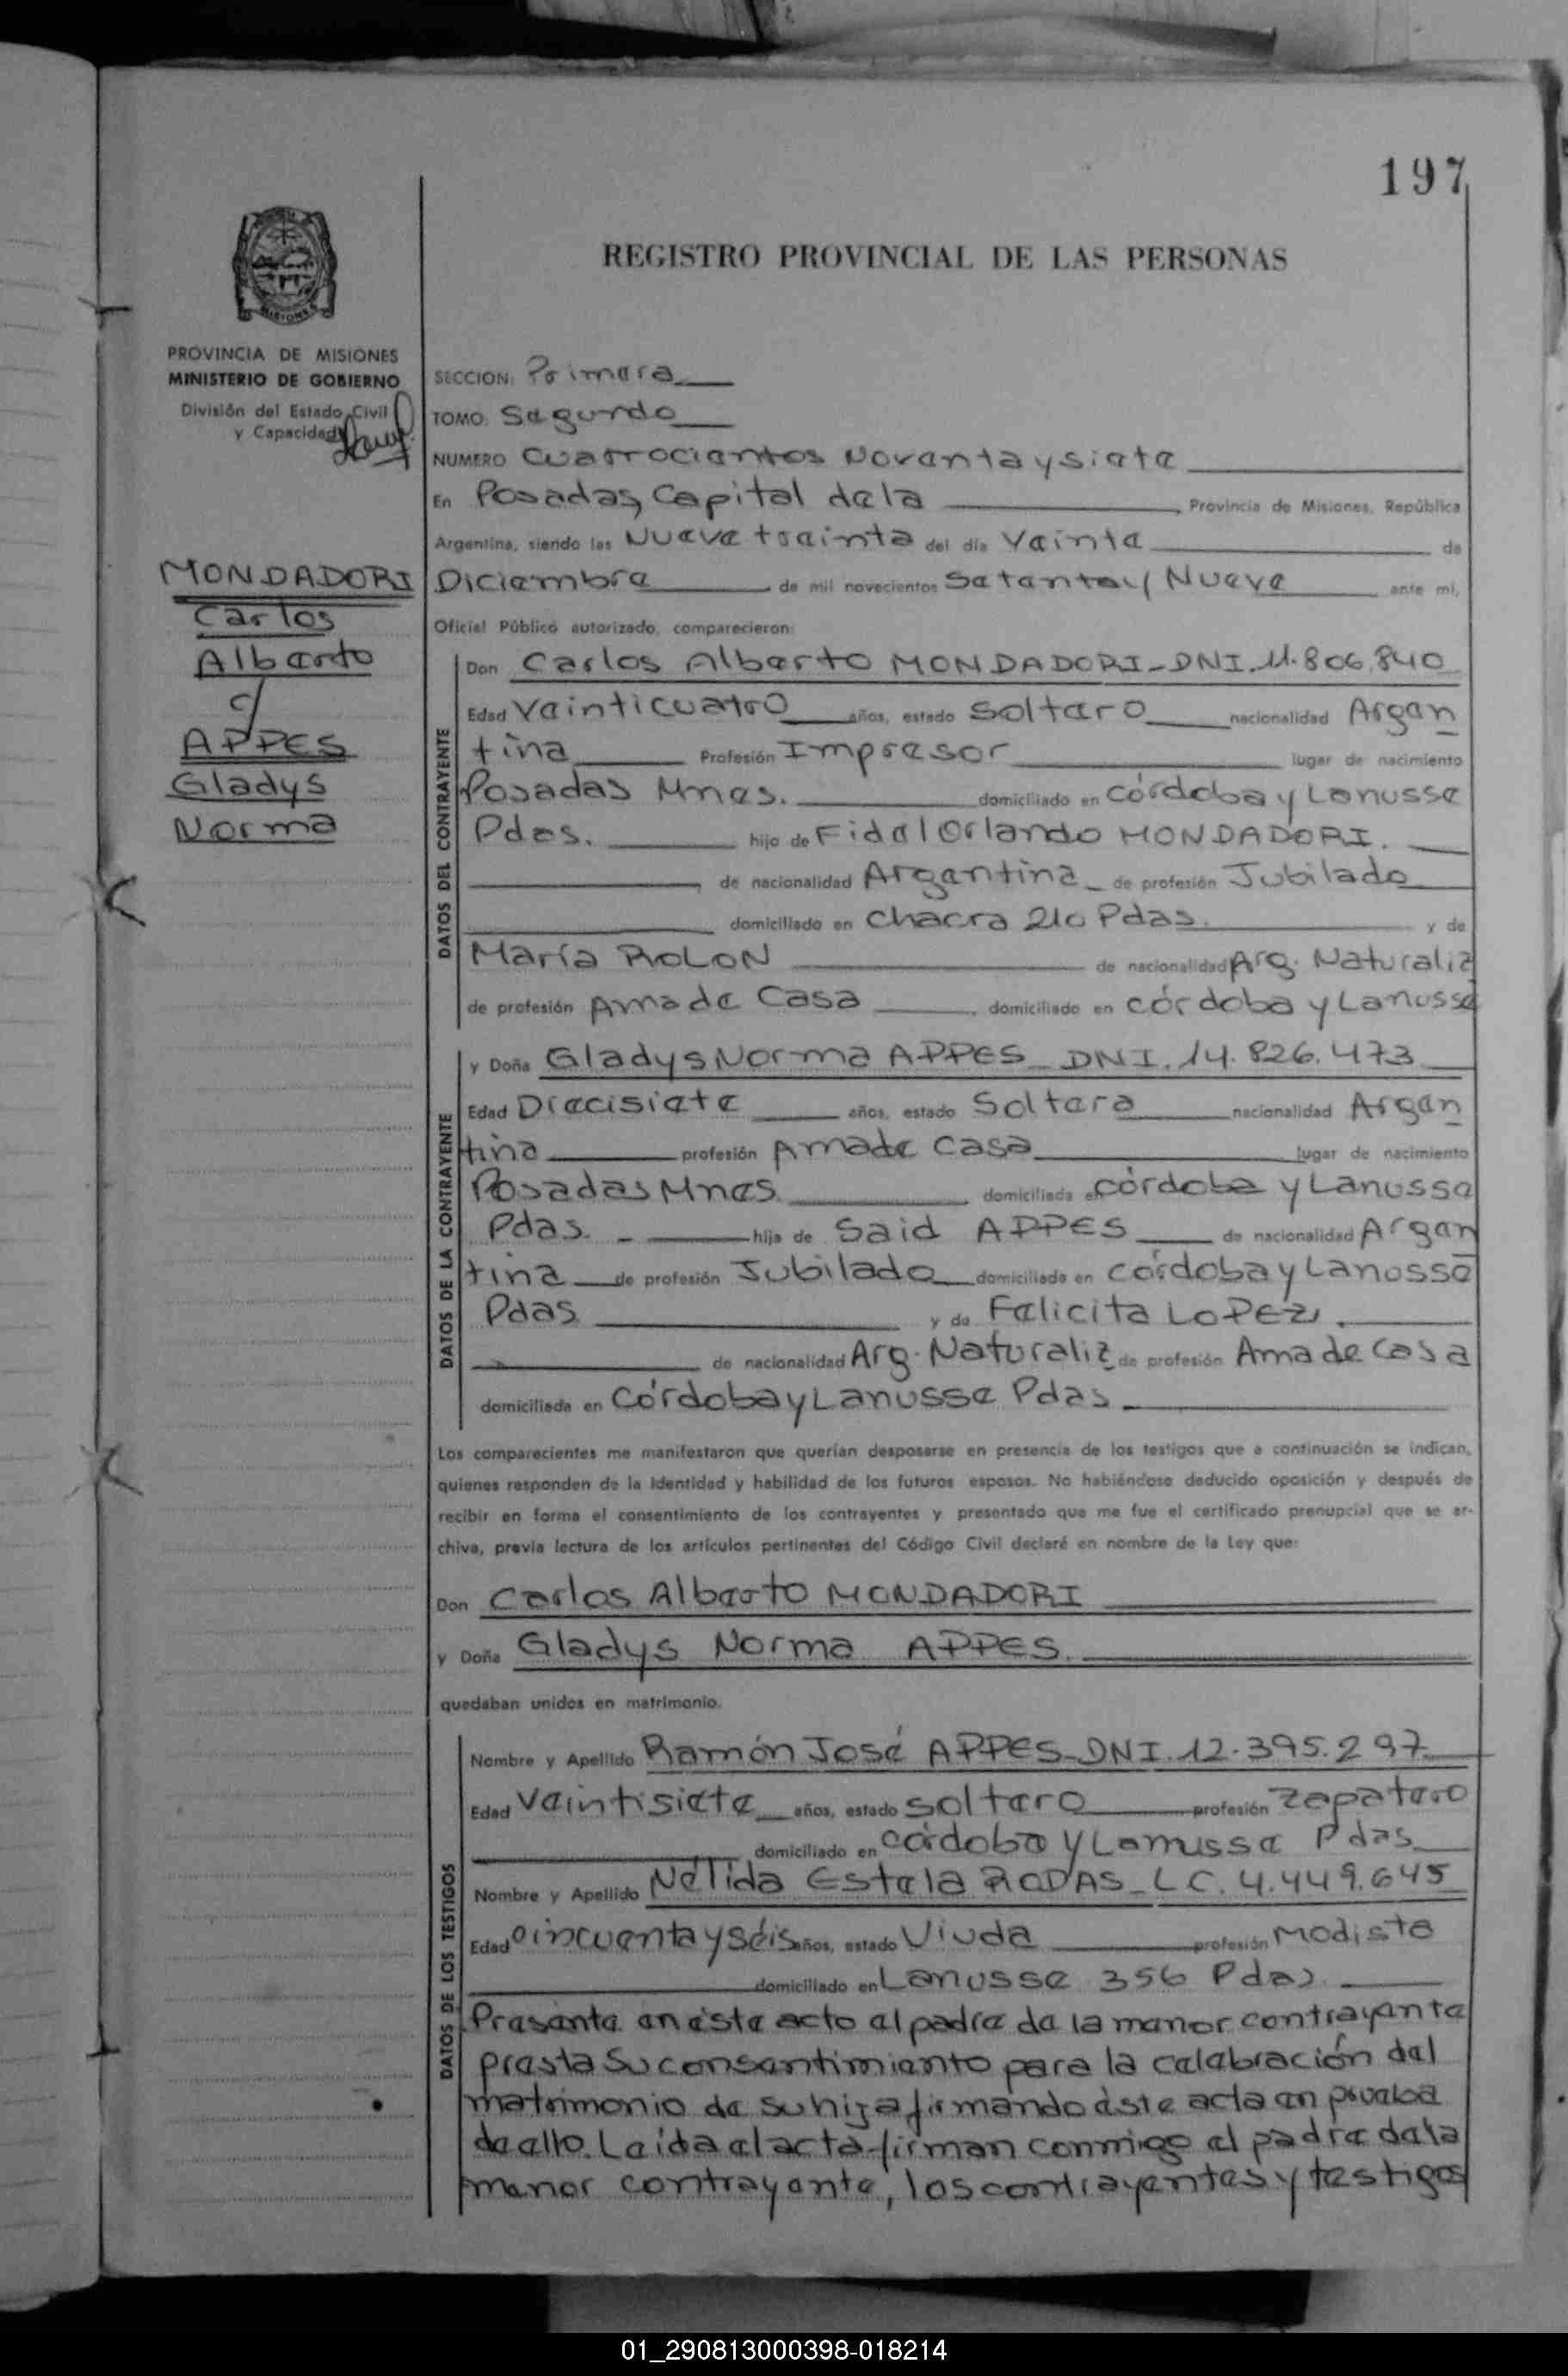 197
REGISTRO PROVINCIAL DE LAS PERSONAS
MISIONES
PROVINCIA DE MISIONES
MINISTERIO DE GOBIERNO
División del Estado Civil
y Capacidad
MONDADORI
Carlos
Alberto
c/
APPES
Gladys
Norma
SECCION: Primera
TOMO: Segundo
NUMERO Cuatrocientos Noventa y siete
En Posadas, Capital de la , Provincia de Misiones, República
Argentina, siendo las Nueve treinta del día Veinte de
Diciembre de mil novecientos Setenta y Nueve ante mí,
Oficial Público autorizado, comparecieron:
DATOS DEL CONTRAYENTE
Don Carlos Alberto MONDADORI - DNI. 11.806.840
Edad Veinticuatro años, estado Soltero nacionalidad Argen
tina Profesión Impresor lugar de nacimiento
Posadas Mnes. domiciliado en córdoba y Lanusse
Pdas. hijo de Fidel Orlando MONDADORI.
, de nacionalidad Argentina - de profesión Jubilado
domiciliado en Chacra 210 Pdas. y de
María ROLON de nacionalidad Arg. Naturaliz
de profesión Ama de Casa , domiciliado en córdoba y Lanusse
DATOS DE LA CONTRAYENTE
y Doña Gladys Norma APPES - DNI. 14.826.473
Edad Diecisiete años, estado Soltera nacionalidad Argen
tina profesión Ama de Casa lugar de nacimiento
Posadas Mnes. domiciliada en córdoba y Lanusse
Pdas. - hija de Said APPES de nacionalidad Argen
tina de profesión Jubilado domiciliado en córdoba y Lanusse
Pdas y de Felicita LOPEZ.
de nacionalidad Arg. Naturaliz de profesión Ama de Casa
domiciliada en Córdoba y Lanusse Pdas.
Los comparecientes me manifestaron que querían desposarse en presencia de los testigos que a continuación se indican,
quienes responden de la identidad y habilidad de los futuros esposos. No habiéndose deducido oposición y después de
recibir en forma el consentimiento de los contrayentes y presentado que me fue el certificado prenupcial que se ar-
chiva, previa lectura de los artículos pertinentes del Código Civil declaré en nombre de la Ley que:
Don Carlos Alberto MONDADORI
y Doña Gladys Norma APPES.
quedaban unidos en matrimonio.
DATOS DE LOS TESTIGOS
Nombre y Apellido Ramón José APPES - DNI. 12.395.297
Edad Veintisiete años, estado Soltero profesión Zapatero
domiciliado en Córdoba y Lanusse Pdas
Nombre y Apellido Nélida Estela RODAS - LC. 4.449.645
Edad cincuenta y séis años, estado Viuda profesión Modista
domiciliado en Lanusse 356 Pdas.
Presente en éste acto el padre de la menor contrayente
presta su consentimiento para la celebración del
matrimonio de su hija firmando éste acta en prueba
de ello. Leída el acta firman conmigo el padre de la
menor contrayente, los contrayentes y testigos
01_290813000398-018214